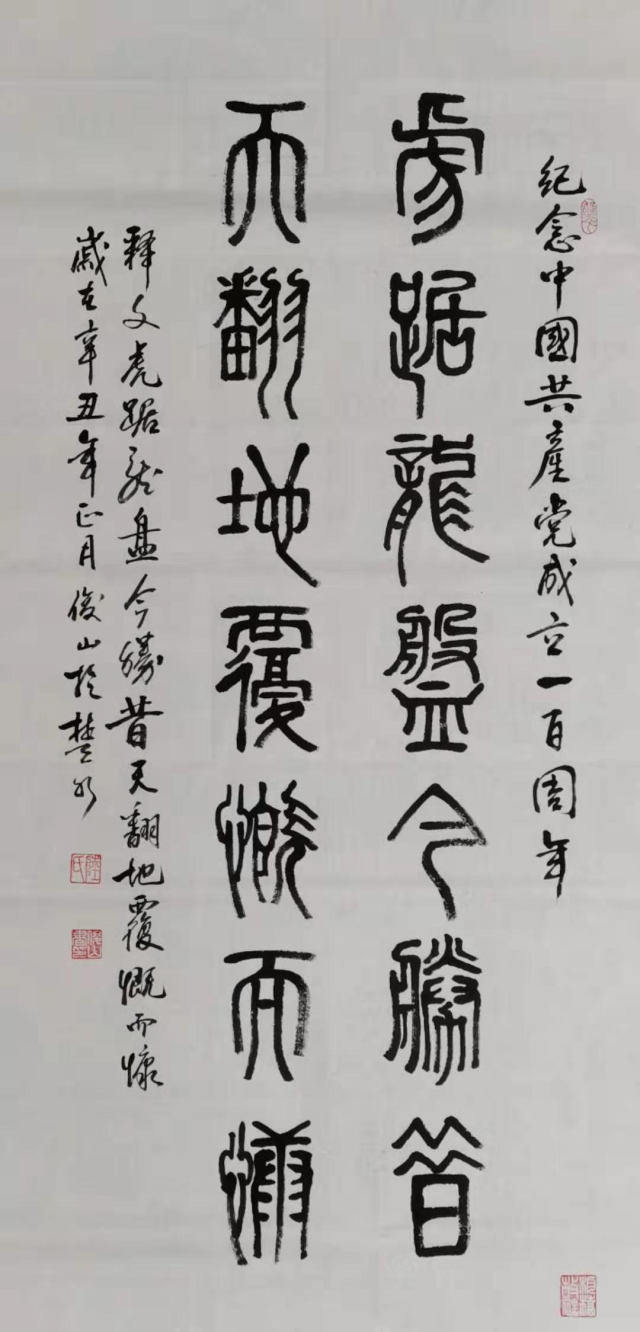 纪念中國共產党成立一百周年
虎踞龍盤今勝昔
天翻地覆慨而慷
释文虎踞龙盘今勝昔天翻地覆慨而慷
歲在辛丑年正月俊山於楚水